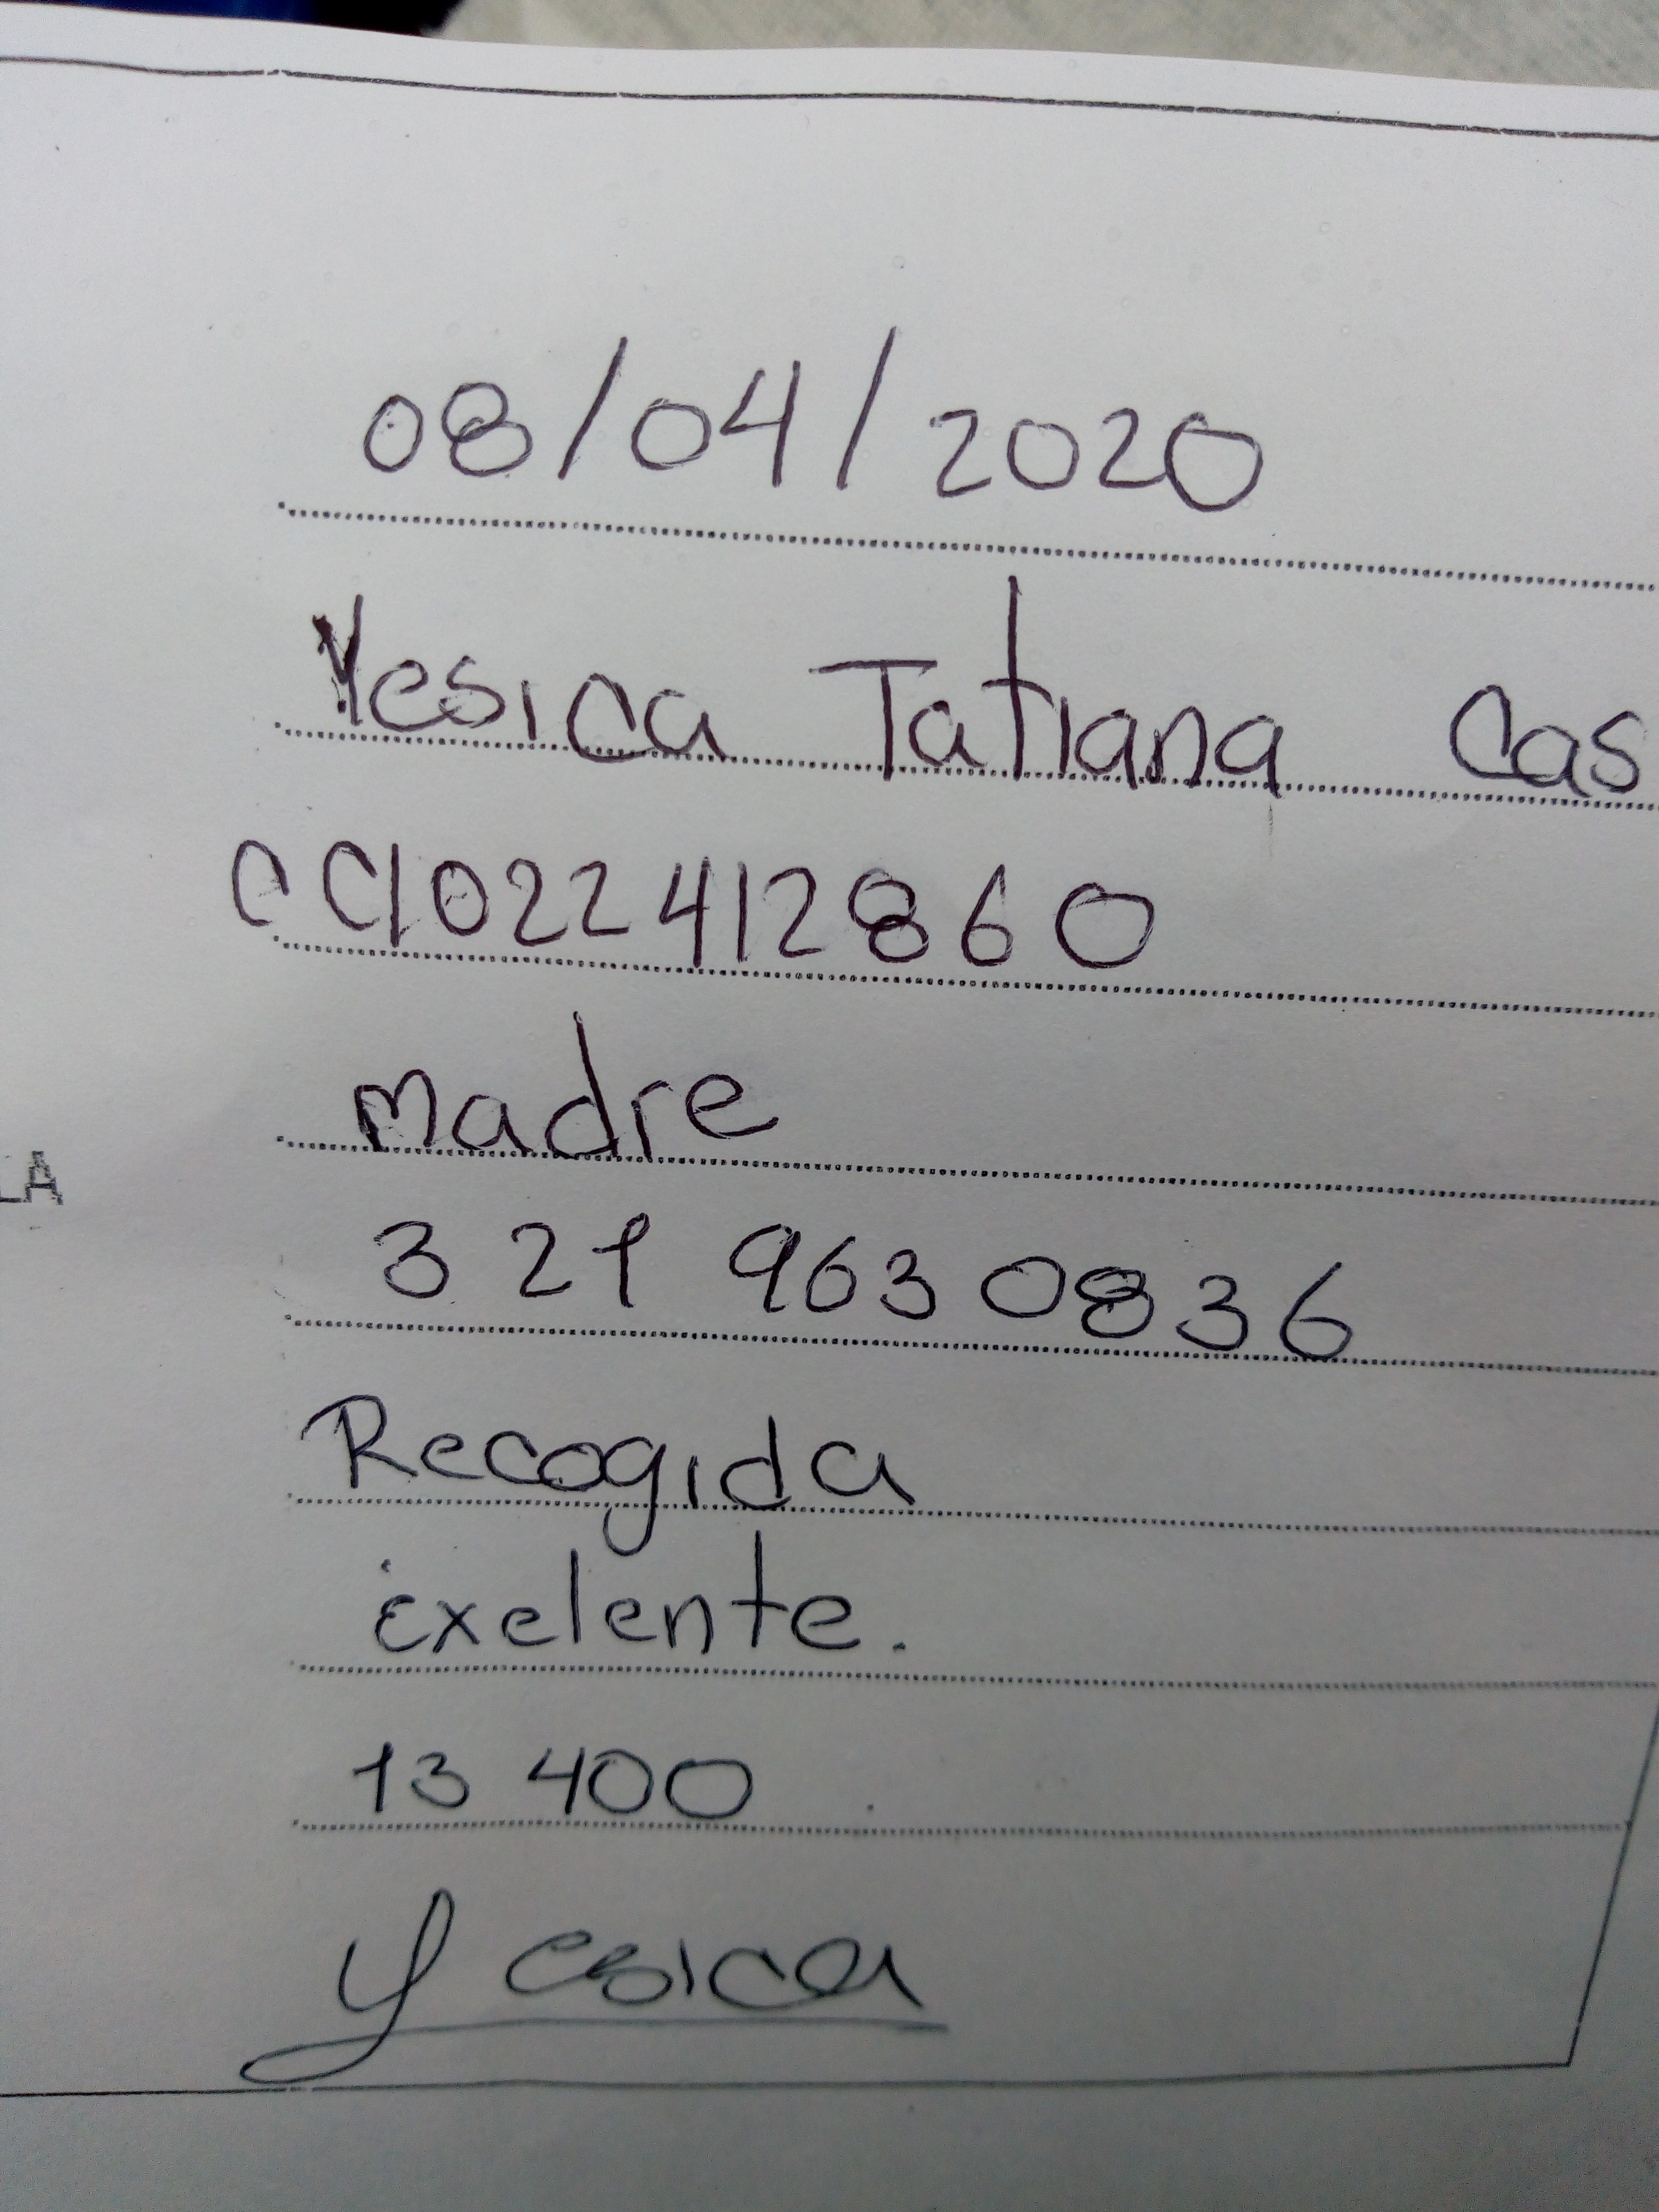 08/04/2020
Yesica Tatiana Cas
CC1022412860
Madre
LA
321 9630836
Recogida
Exelente.
13 400
Yesica